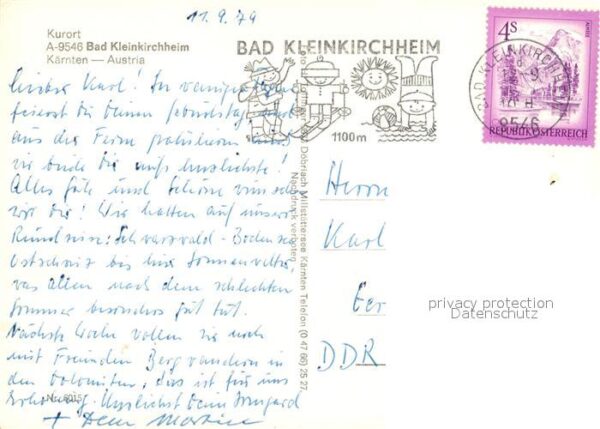 11.9.79
Kurort
A-9546 Bad Kleinkirchheim
Kärnten — Austria
BAD KLEINKIRCHHEIM
1100m
4S
REPUBLIK ÖSTERREICH
BAD KLEINKIRCHHEIM
9546
Lieber Karl! In wenigen Tagen
feierst du Deinen Geburtstag und
aus der Ferne gratulieren
wir beide Dir aufs herzlichste!
Alles Gute und Schöne wünschen
wir Dir! Wir hatten auf unserer
Rundreise: Schwarzwald - Bodensee
Ostschweiz bis hier Sonnenwetter,
was allen nach dem schlechten
Sommer besonders gut tut.
Nächste Woche wollen wir noch
mit Freunden Bergwandern in
den Dolomiten, das ist für uns
Erholung. Herzlichst Deine Irmgard
+ Dein Martin
Nr. 6015
Döbriach Millstättersee Kärnten Telefon (0 47 66) 25 27
Nachdruck verboten
Herrn
Karl
Ger
DDR
privacy protection
Datenschutz